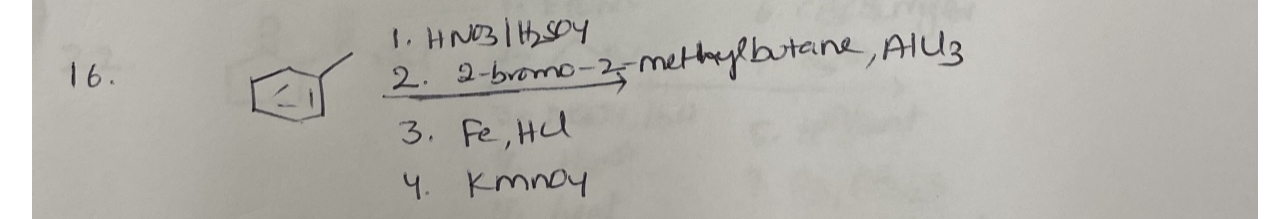 16.
1. HNO3/H2SO4
2. 2-bromo-2-methylbutane, AlCl3
3. Fe, HCl
4. KmnO4